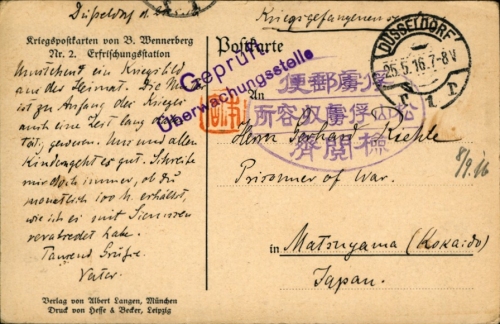 Düsseldorf d.
Kriegsgefangenen
Kriegspostkarten von B. Wennerberg
Nr. 2. Erfrischungsstation
Postkarte
DÜSSELDORF
25.5.16.7-8V
1
Geprüft
Überwachungsstelle
俘虜郵便
松山俘虜収容所
検閲済
An
Umstehend ein Kriegsbild
aus der Heimat. Die
ist zu Anfang des Krieges
auch eine Zeit lang dort
tätig gewesen. Uns und allen
Kindern geht es gut. Schreibe
mir doch immer, ob du
monatlich 100 M. erhältst,
wie ich es mit Siemssen
verabredet habe.
Tausend Grüsse.
Vater.
Herrn Gerhard Kiehle
Prisoner of War.
8/9.16
in Matsuyama (Kokaido)
Japan.
Verlag von Albert Langen, München
Druck von Hesse & Becker, Leipzig